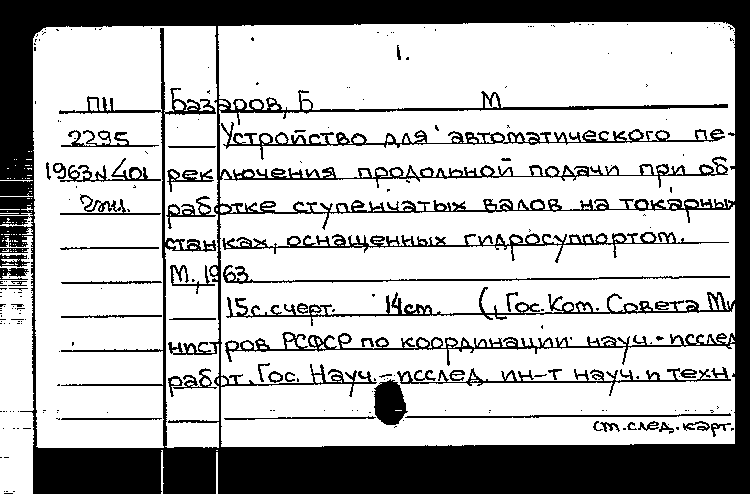 1.
ПII Базаров, Б М
2295 Устройство для автоматического пе-
1963 N 401 реключения продольной подачи при об-
работке ступенчатых валов на токарных
станках, оснащенных гидросуппортом.
М., 1963
15с. с черт. 14 см. (Гос. Ком. Совета Ми
нистров РСФСР по координации науч.-исслед
работ. Гос. Науч.-исслед. ин-т науч. и техн.
см. след. карт.